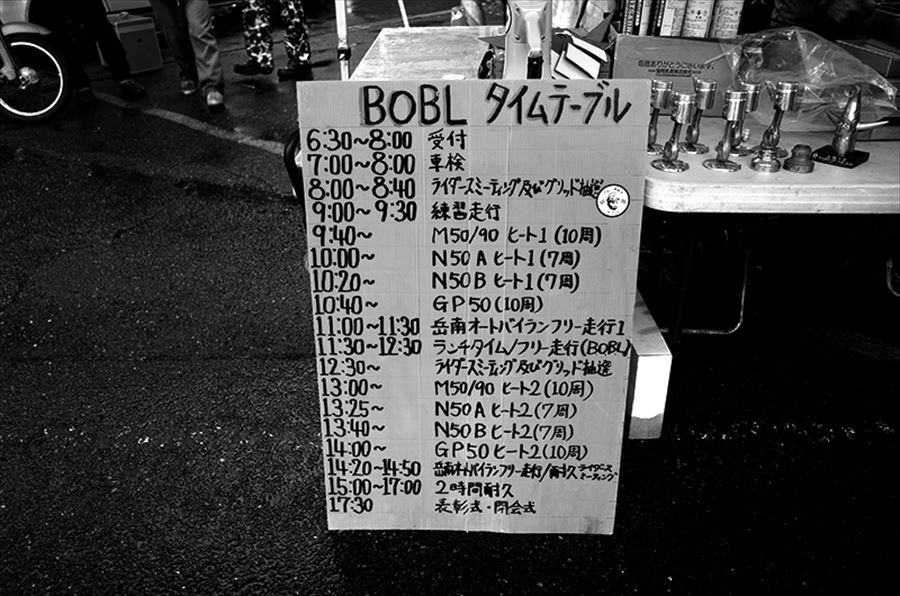 毎度ありがとうございます。
BOBL タイムテーブル
6:30~8:00 受付
7:00~8:00 車検
8:00~8:40 ライダースミーティング及びグリッド抽選
9:00~9:30 練習走行
9:40~ M50/90 ヒート1 (10周)
10:00~ N50A ヒート1 (7周)
10:20~ N50B ヒート1 (7周)
10:40~ GP50 (10周)
11:00~11:30 岳南オートバイランフリー走行1
11:30~12:30 ランチタイム/フリー走行(BOBL)
12:30~ ライダースミーティング及びグリッド抽選
13:00~ M50/90 ヒート2 (10周)
13:25~ N50A ヒート2 (7周)
13:40~ N50B ヒート2 (7周)
14:00~ GP50 ヒート2 (10周)
14:20~14:50 岳南オートバイランフリー走行/耐久ライダースミーティング
15:00~17:00 2時間耐久
17:30 表彰式・閉会式